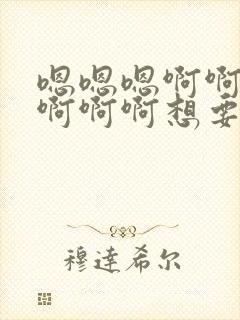 嗯嗯嗯啊啊
啊啊啊想要
穆達希尔